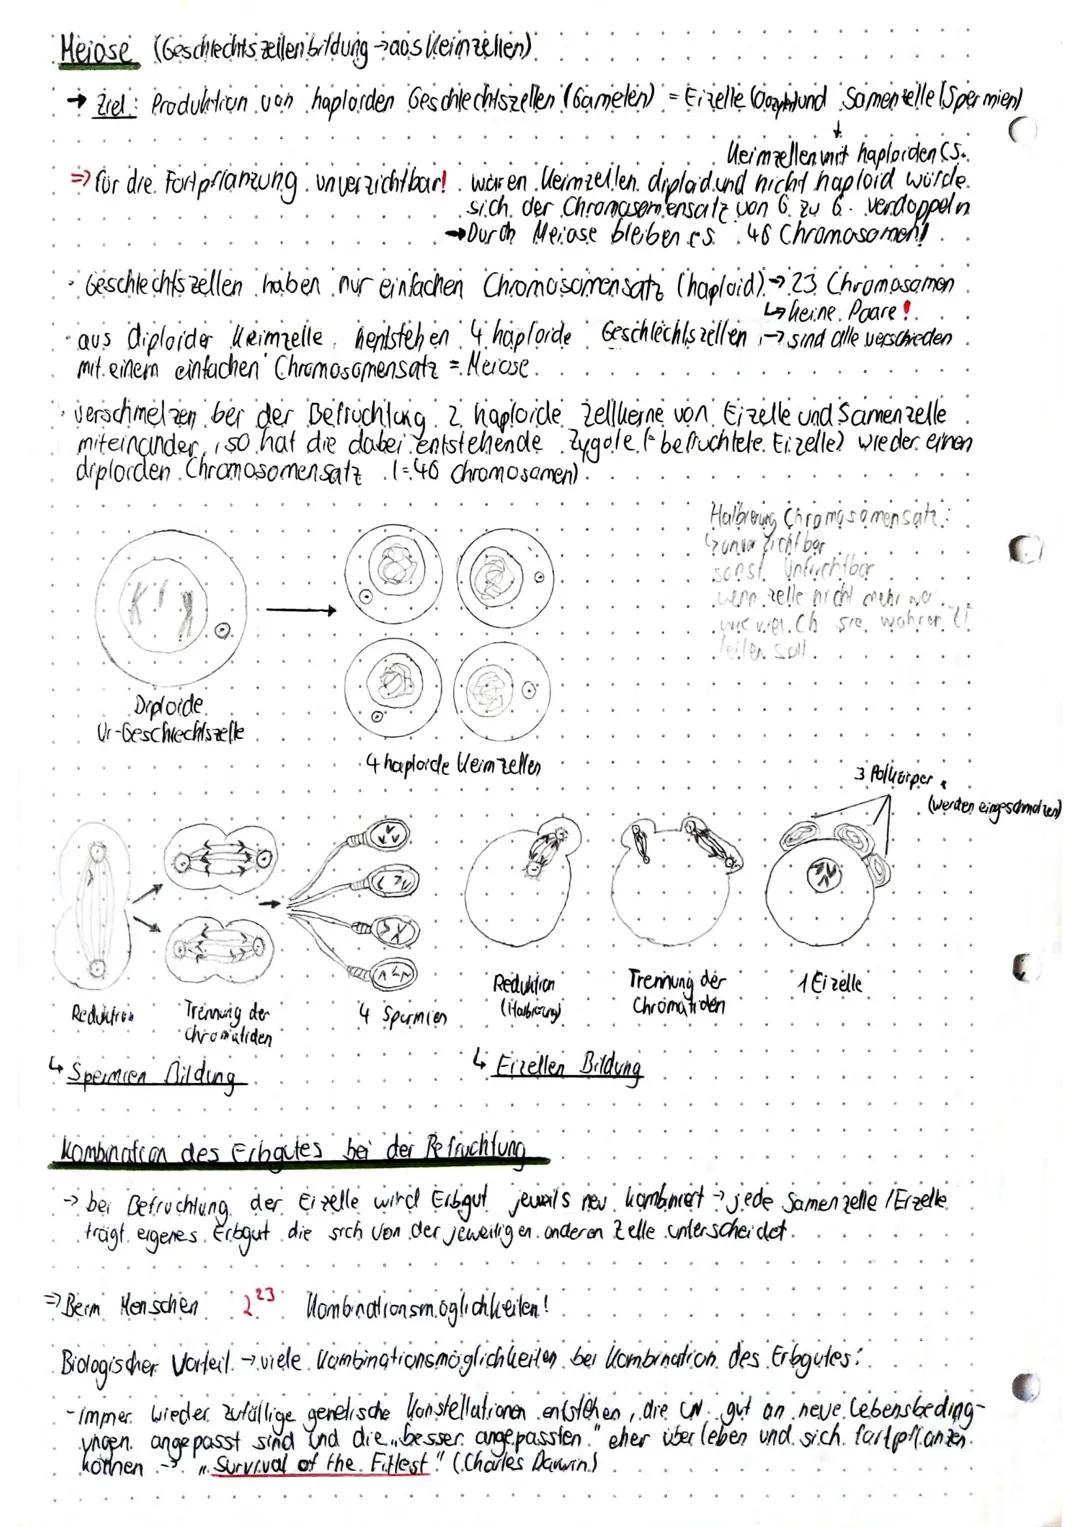 Meiose (Geschlechtszellenbildung → aus Keimzellen)
→ Ziel: Produktion von haploiden Geschlechtszellen (Gameten) = Eizelle (Oozyte) und Samenzelle (Spermien)
↓
Keimzellen mit haploiden CS.
⇒ für die Fortpflanzung unverzichtbar! wären Keimzellen diploid und nicht haploid würde
sich der Chromosomensatz von G. zu G. verdoppeln
→ Durch Meiose bleiben es 46 Chromosomen!
· Geschlechtszellen haben nur einfachen Chromosomensatz (haploid) → 23 Chromosomen
↳ keine Paare!
· aus diploider Keimzelle entstehen 4 haploide Geschlechtszellen → sind alle verschieden
mit einem einfachen Chromosomensatz = Meiose.
· verschmelzen bei der Befruchtung 2 haploide Zellkerne von Eizelle und Samenzelle
miteinander, so hat die dabei entstehende Zygote (= befruchtete Eizelle) wieder einen
diploiden Chromosomensatz (= 46 Chromosomen).
Halbierung Chromosomensatz:
↳ unverzichtbar
sonst unfruchtbar
wenn zelle nicht mehr
wie viel Ch sie
teilen soll
Diploide
Ur-Geschlechtszelle
4 haploide Keimzellen
3 Polkörper
(werden eingeschmolzen)
Reduktion
Trennung der
Chromatiden
4 Spermien
Reduktion
(Halbierung)
Trennung der
Chromatiden
1 Eizelle
↳ Spermien Bildung
↳ Eizellen Bildung
Kombination des Erbgutes bei der Befruchtung
→ bei Befruchtung der Eizelle wird Erbgut jeweils neu kombiniert → jede Samenzelle / Eizelle
trägt eigenes Erbgut die sich von der jeweiligen anderen Zelle unterscheidet.
⇒ Beim Menschen 2²³ Kombinationsmöglichkeiten!
Biologischer Vorteil → viele Kombinationsmöglichkeiten bei Kombination des Erbgutes:
- Immer wieder zufällige genetische Konstellationen entstehen, die gut an neue Lebensbeding-
ungen angepasst sind und die „besser angepassten" eher überleben und sich fortpflanzen
können → „Survival of the Fittest" (Charles Darwin)